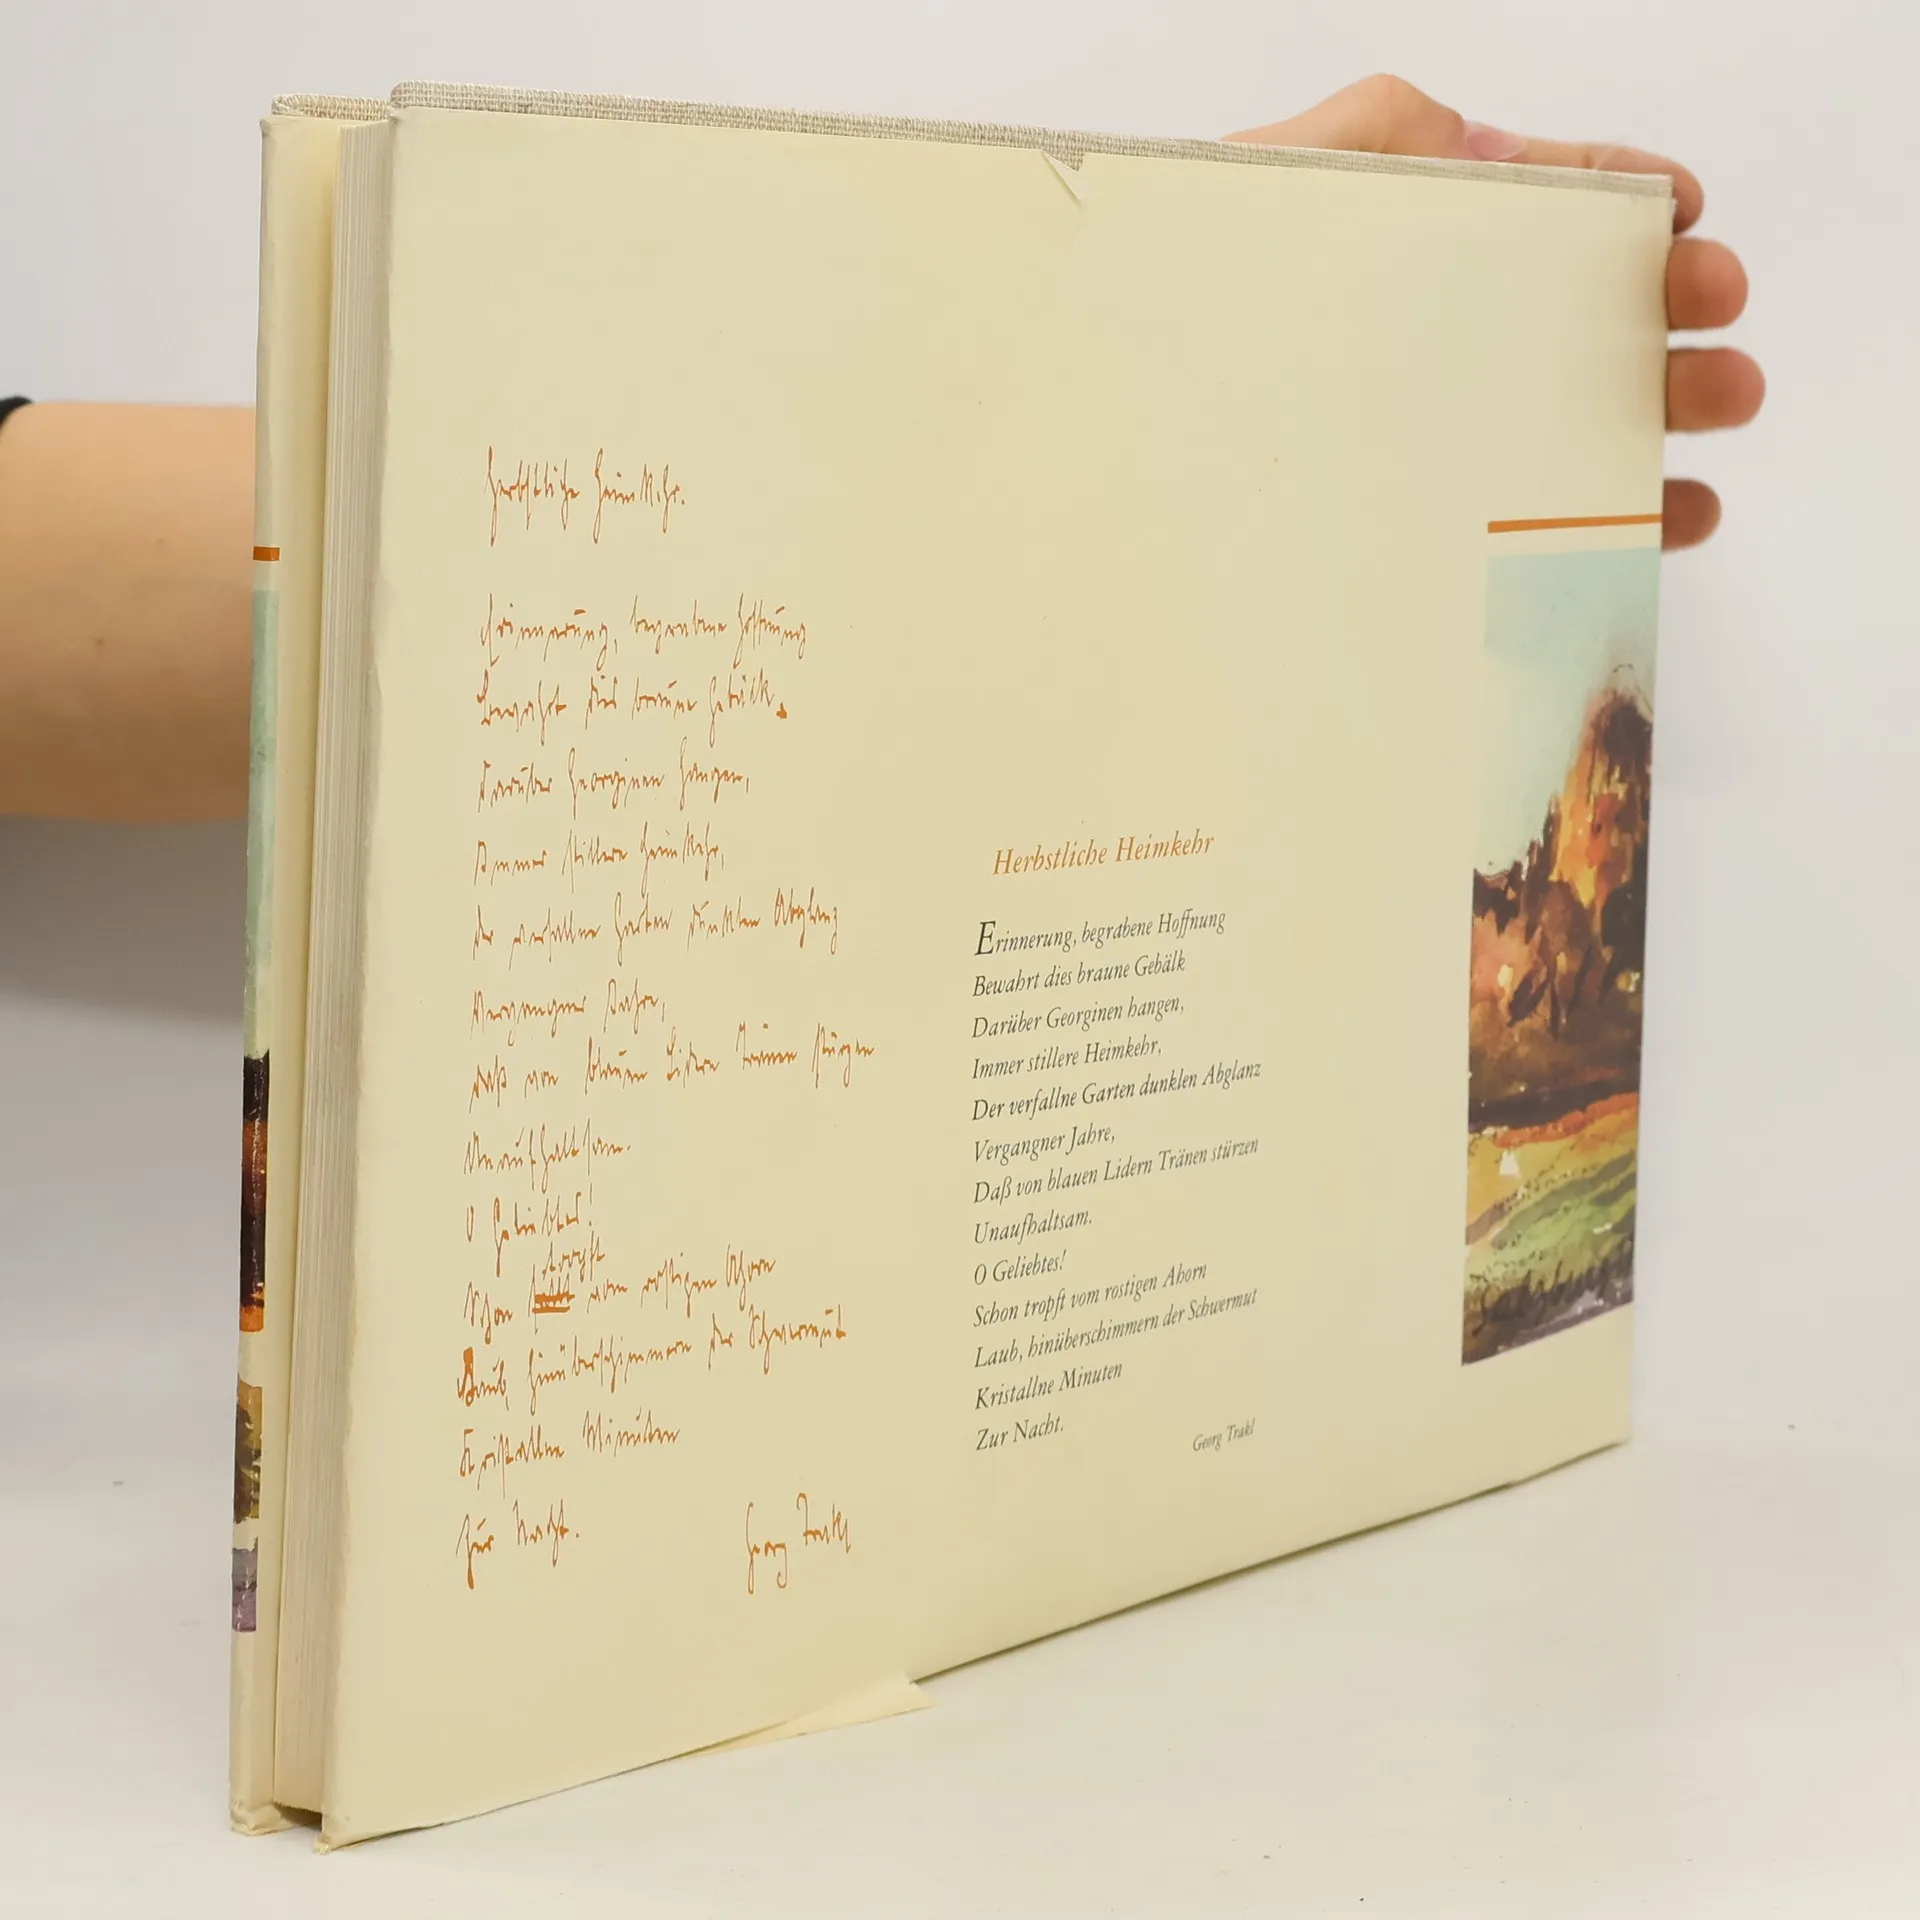 Herbstliche Heimkehr.
Erinnerung, begrabene Hoffnung
Bewahrt dies braune Gebälk
Darüber Georginen hangen,
Immer stillere Heimkehr,
Der verfallne Garten dunklen Abglanz
Vergangner Jahre,
Daß von blauen Lidern Tränen stürzen
Unaufhaltsam.
O Geliebtes!
tropft
Schon vom rostigen Ahorn
Laub, hinüberschimmern der Schwermut
Kristallne Minuten
Zur Nacht.
Georg Trakl
Herbstliche Heimkehr
Erinnerung, begrabene Hoffnung
Bewahrt dies braune Gebälk
Darüber Georginen hangen,
Immer stillere Heimkehr,
Der verfallne Garten dunklen Abglanz
Vergangner Jahre,
Daß von blauen Lidern Tränen stürzen
Unaufhaltsam.
O Geliebtes!
Schon tropft vom rostigen Ahorn
Laub, hinüberschimmern der Schwermut
Kristallne Minuten
Zur Nacht.
Georg Trakl